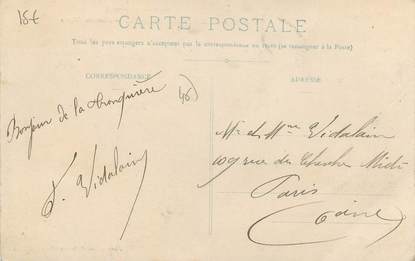 18€
CARTE POSTALE
Tous les pays étrangers n'acceptent pas la correspondance au recto (se renseigner à la Poste)
CORRESPONDANCE
ADRESSE
Bonjour de la tronquière
46)
V. Vidalain
Mr et Mme Vidalain
109 rue du Cherche Midi
Paris